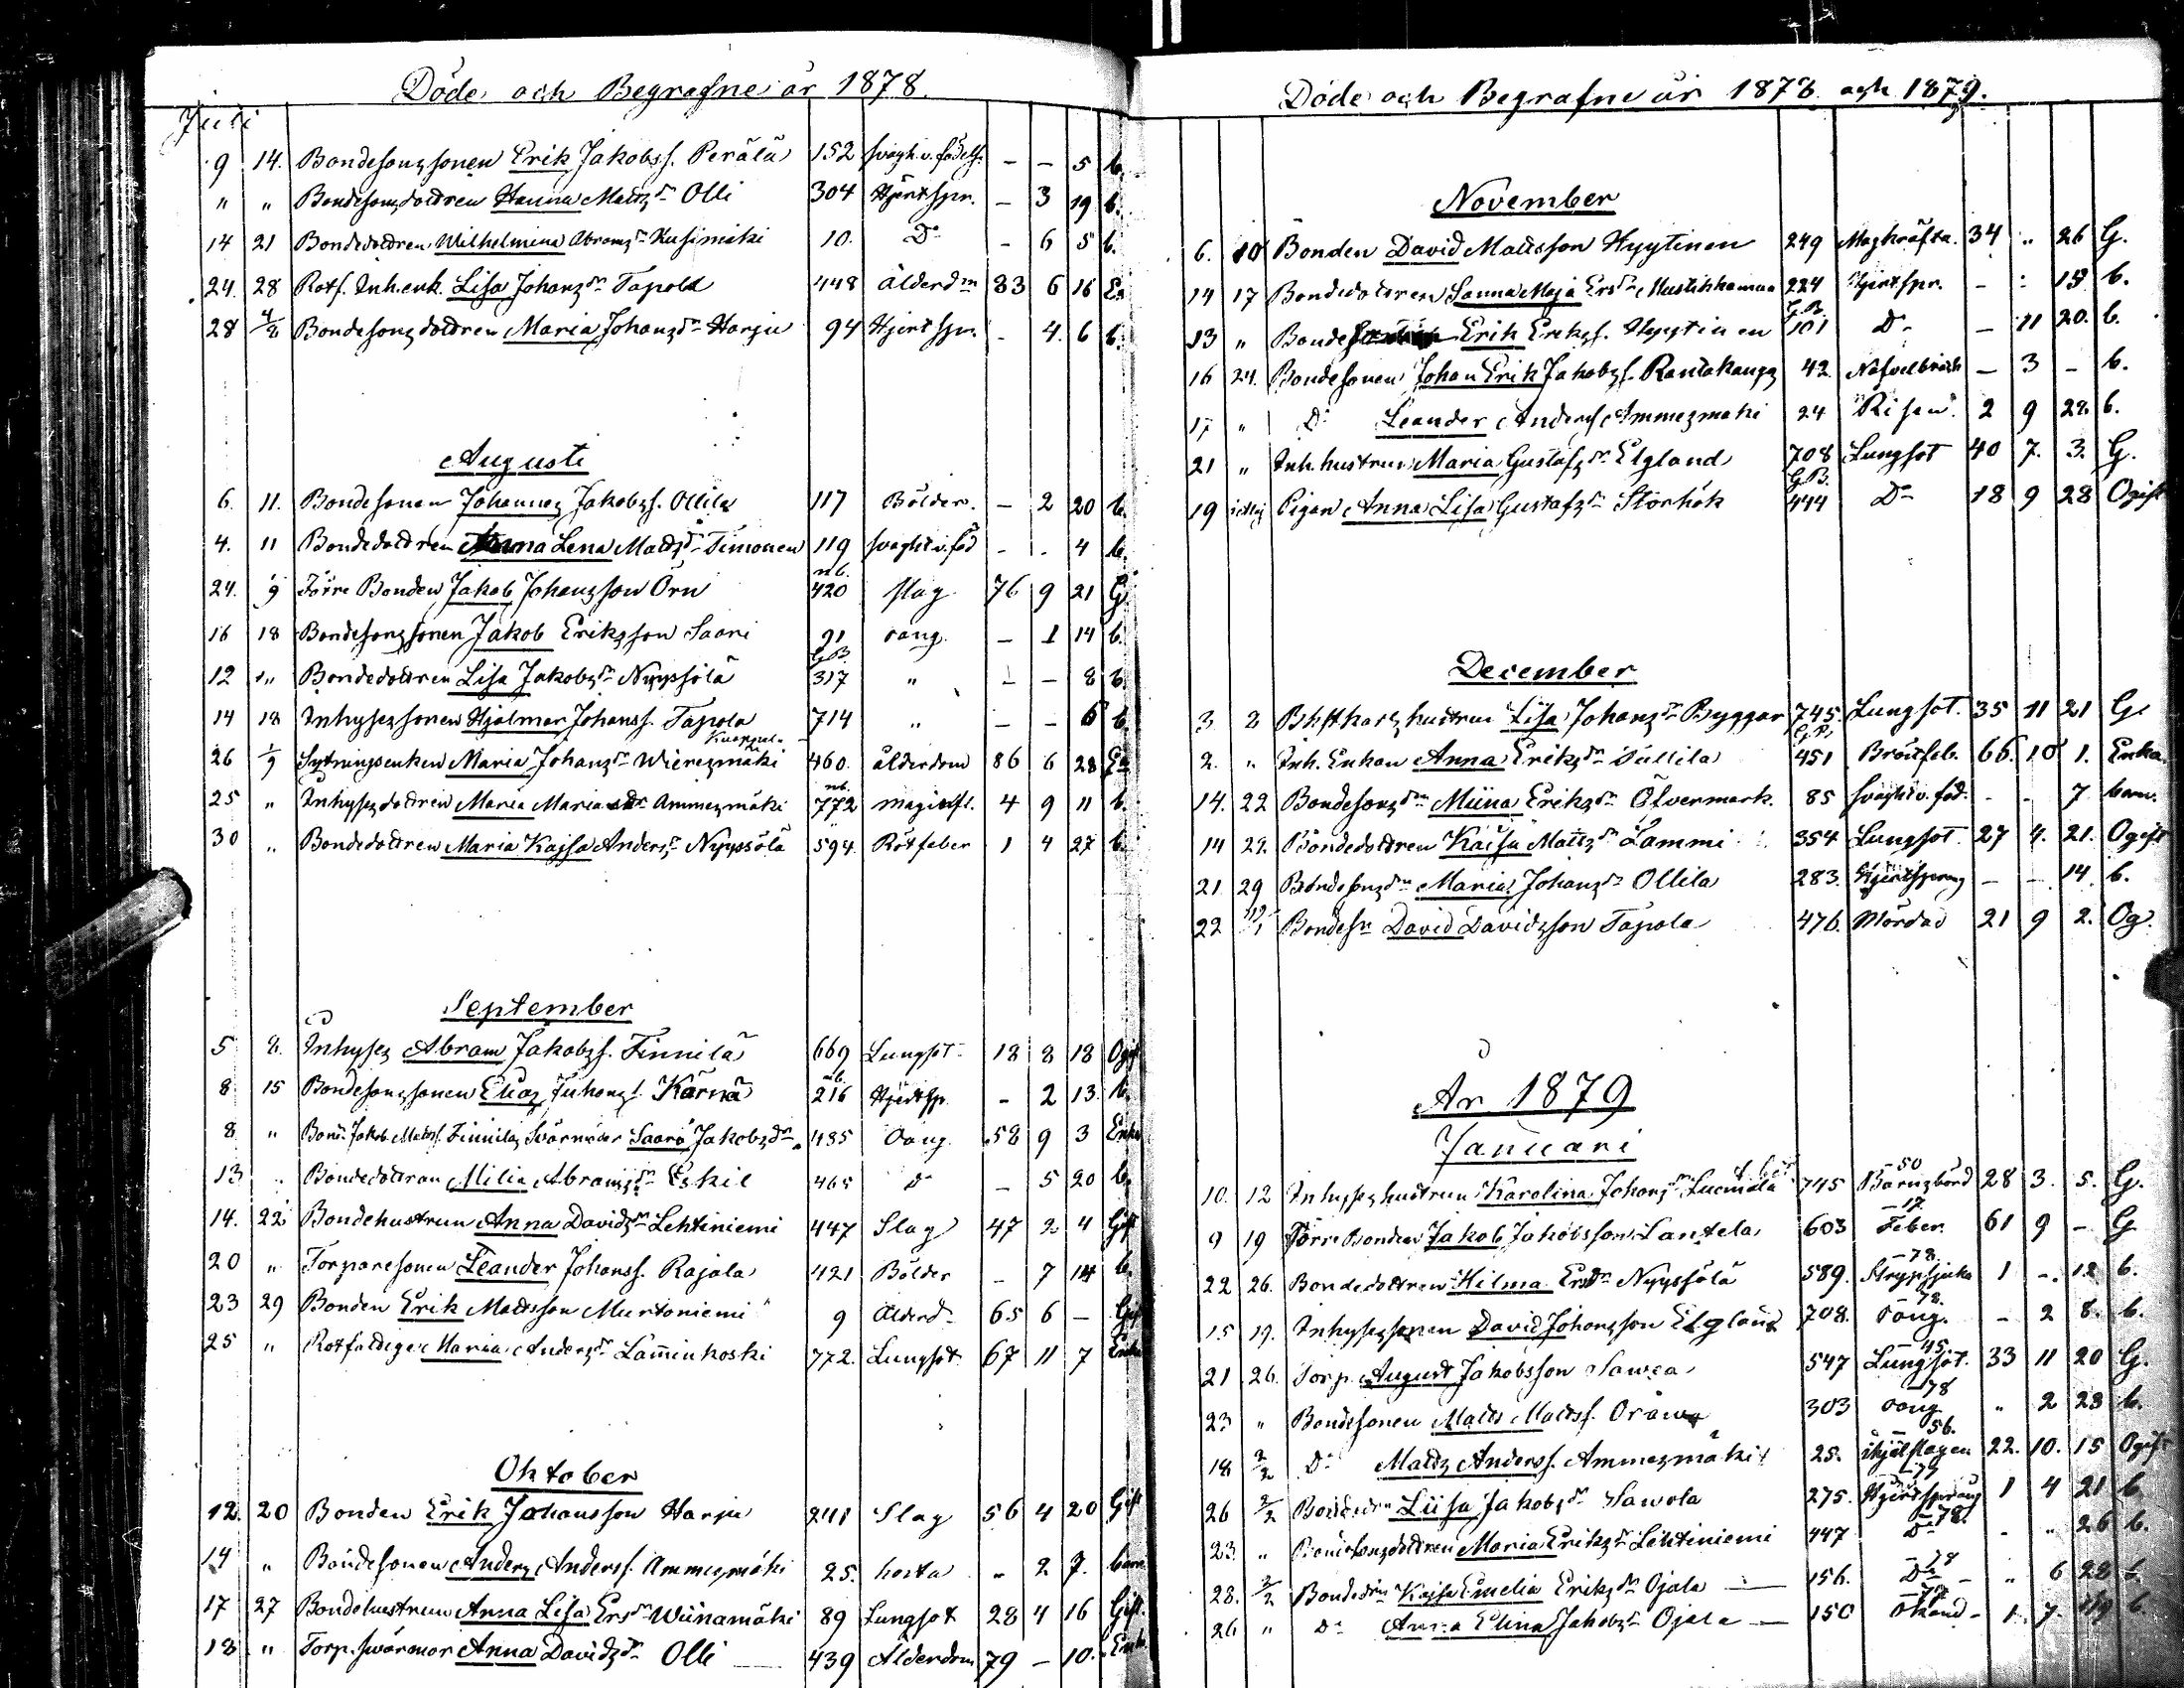 Döde och Begrafne år 1878.
Juli
9 14. Bondesonssonen Erik Jakobss. Perälä 152 svagh. v. födels. - - 5 b.
" " Bondesonsdottren Hanna Mattsdr Olli 304 Hjertspr. - 3 19 b.
14 21 Bondedottren Wilhelmina Abramsdr Kusimäki 10. Do - 6 5 b.
24. 28 Rotf. Inh.enk. Lisa Johansdr Tapola 448 ålderdm 83 6 16 En
28 4/8 Bondesonsdottren Maria Johansdr Harju 94 Hjertspr. - 4. 6 b.
Augusti
6. 11. Bondesonen Johannes Jakobss. Ollila 117 Bölder. - 2 20 b.
4. 11 Bondedottren Anna Lena Mattsdr Timonen 119 svaght v. föd - - 4 b.
24. 9 Förre Bonden Jakob Johansson Örn nb. 420 slag 76 9 21 G.
16 18 Bondesonssonen Jakob Eriksson Saari 91 oang. - 1 14 b.
12 " Bondedottren Lisa Jakobsdr Nyyssölä G.B. 317 " - - 8 b.
14 18 Inhysessonen Hjalmar Johanss. Tapola 714 " - - 6 b.
26 1/9 Sytningsenkan Maria Johansdr Wieresmäki 460. ålderdom 86 6 28 En
25 " Inhysesdottren Maria Mariasdr Ammesmäki nb. 772 maginfl. 4 9 11 b.
30 " Bondedottren Maria Kajsa Andersdr Nyyssölä 594. Rötfeber 1 4 27 b.
September
5 8. Inhyses Abram Jakobss. Finnilä 669 Lungsot 18 8 18 Ogift
8 15 Bondesonssonen Elias Juhanss. Kärnä nb. 216 Hjertsp. - 2 13 b.
8 " Bond. Jakob Mattss. Finnilas Svärmoder Saara Jakobsdr 485 Oang. 58 9 3 Enka
13 " Bondedottren Milia Abramsdr Eskil 465 Do - 5 20 b.
14. 22 Bondehustrun Anna Davidsdr Lehtiniemi 447 Slag 47 2 4 Gift
20 " Torparesonen Leander Johanss. Rajala 421 Bölder - 7 14 b.
23 29 Bonden Erik Mattsson Murtoniemi 9 Ålderd. 65 6 - Gift
25 " Rotfaldige Maria Andersdr Lam̄inkoski 772. Lungsot 67 11 7 Enka
Oktober
12. 20 Bonden Erik Johansson Harju 241 Slag 56 4 20 Gift
14 " Bondesonen Anders Anderss. Ammesmäki 25. hosta " 2 7. barn
17 27 Bondehustrun Anna Lisa Ersdr Wiinamäki 89 Lungsot 28 4 16 Gift.
18 " Torp. svärmor Anna Davidsdr Olli 439 Ålderdom 79 - 10. Enk.
Döde och Begrafne år 1878 och 1879.
November
6. 10 Bonden David Mattsson Hyytinen 249 Magkräfta. 34 " 26 G.
14 17 Bondedottren Sanna Maja Ersdr Mustikkamaa 224 Hjertspr. - - 18 b.
13 " Bonde Erik Erikss. Hyytinen G.B. 101 Do - 11 20. b.
16 24. Bondesonen Johan Erik Jakobss. Rantakangas 42. - 3 - b.
17 " Do Leander Anderss. Ammesmäki 24 "Risen" 2 9 28. b.
21 " Inh.hustrun Maria Gustafsdr Elgland 708 Lungsot 40 7. 3. G.
19 Pigan Anna Lisa Gustafsdr Storhök G.B. 444 Do 18 9 28 Ogift
December
3 8 hustrun Lisa Johansdr Byggar 745. Lungsot. 35 11 21 G.
2. " Inh. Enkan Anna Eriksdr Süllilä G.B. 451 Bröstfeb. 66. 10 1. Enka.
14. 22 Bondesonsdr Miina Eriksdr Öfvermark. 85 svaght v. föd. - - 7 barn.
14 22. Bondedottren Kaisa Mattsdr Lammi 354 Lungsot 27 4. 21. Ogift
21. 29 Bondesonsdr Maria Johansdr Ollila 283. Hjertsprång - - 14. b.
22 Bondesn David Davidsson Tapola 476. Mördad 21 9 2. Og.
År 1879
Januari
10. 12 Inhyseshustrun Karolina Johansdr Luomala 745 -50 Barnsbörd 28 3. 5. G.
9 19 Förre Bonden Jakob Jakobsson Lantela 603 -17 Feber. 61 9 - G
22 26. Bondedottren Hilma Ersdr Nyyssölä 589. -78. Strypsjuka 1 - 12 b.
15 19. Inhysessonen David Johansson Elgland 708. -78. oang. - 2 8. b.
21 26. Torp. August Jakobsson Sawea 547 -45 Lungsot. 33 11 20 G.
23 " Bondesonen Matts Mattss. Orawa 303 -78 oang " 2 23 b.
18 2/2 Do Matts Anderss. Ammesmäki 25. -56. ihjälslagen 22. 10. 15 Ogift
26 2/2 Bondedn Liisa Jakobsdr Sawola 275. -77 Hjertsprång 1 4 21 b
23. " Bondesonsdottren Maria Eriksdr Lehtiniemi 447 Do 78. - " 26 b.
28. 2/2 Bondedrn Kajsa Emelia Eriksdr Ojala 156. -78 Do - " 6 28 b
26 " Do Anna Elina Jakobsdr Ojala 150 -77 Okänd - 1. 7. b